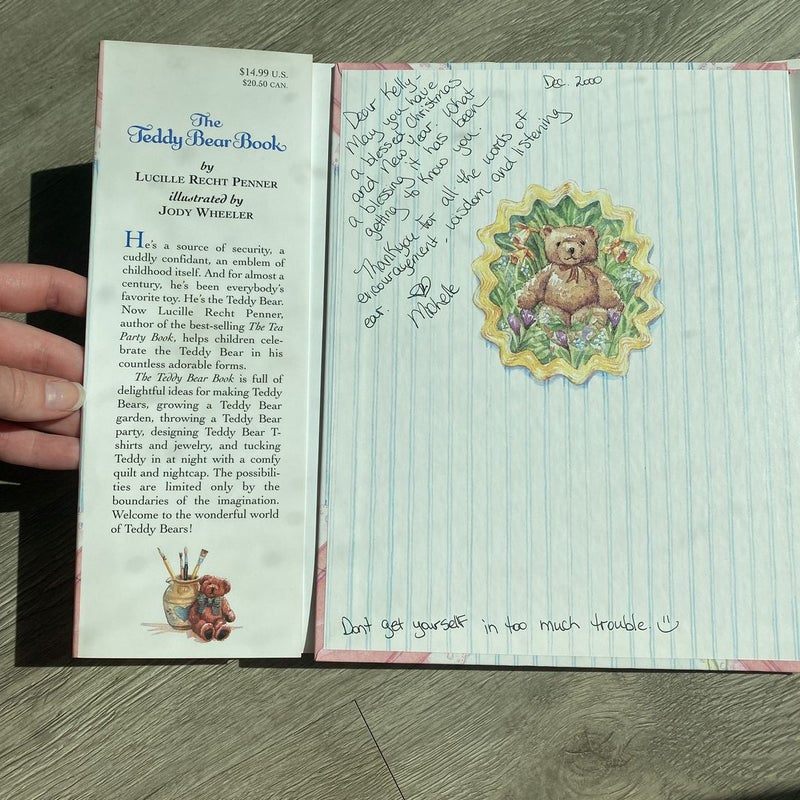 $14.99 U.S.
$20.50 CAN.
The
Teddy Bear Book
by
LUCILLE RECHT PENNER
illustrated by
JODY WHEELER
He's a source of security, a
cuddly confidant, an emblem of
childhood itself. And for almost a
century, he's been everybody's
favorite toy. He's the Teddy Bear.
Now Lucille Recht Penner,
author of the best-selling The Tea
Party Book, helps children cele-
brate the Teddy Bear in his
countless adorable forms.
The Teddy Bear Book is full of
delightful ideas for making Teddy
Bears, growing a Teddy Bear
garden, throwing a Teddy Bear
party, designing Teddy Bear T-
shirts and jewelry, and tucking
Teddy in at night with a comfy
quilt and nightcap. The possibili-
ties are limited only by the
boundaries of the imagination.
Welcome to the wonderful world
of Teddy Bears!
Dec. 2000
Dear Kelly-
May you have
a blessed Christmas
and New Year. What
a blessing it has been
getting to know you.
Thankyou for all the words of
encouragement - wisdom and listening
ear.
Michele
Dont get yourself in too much trouble.